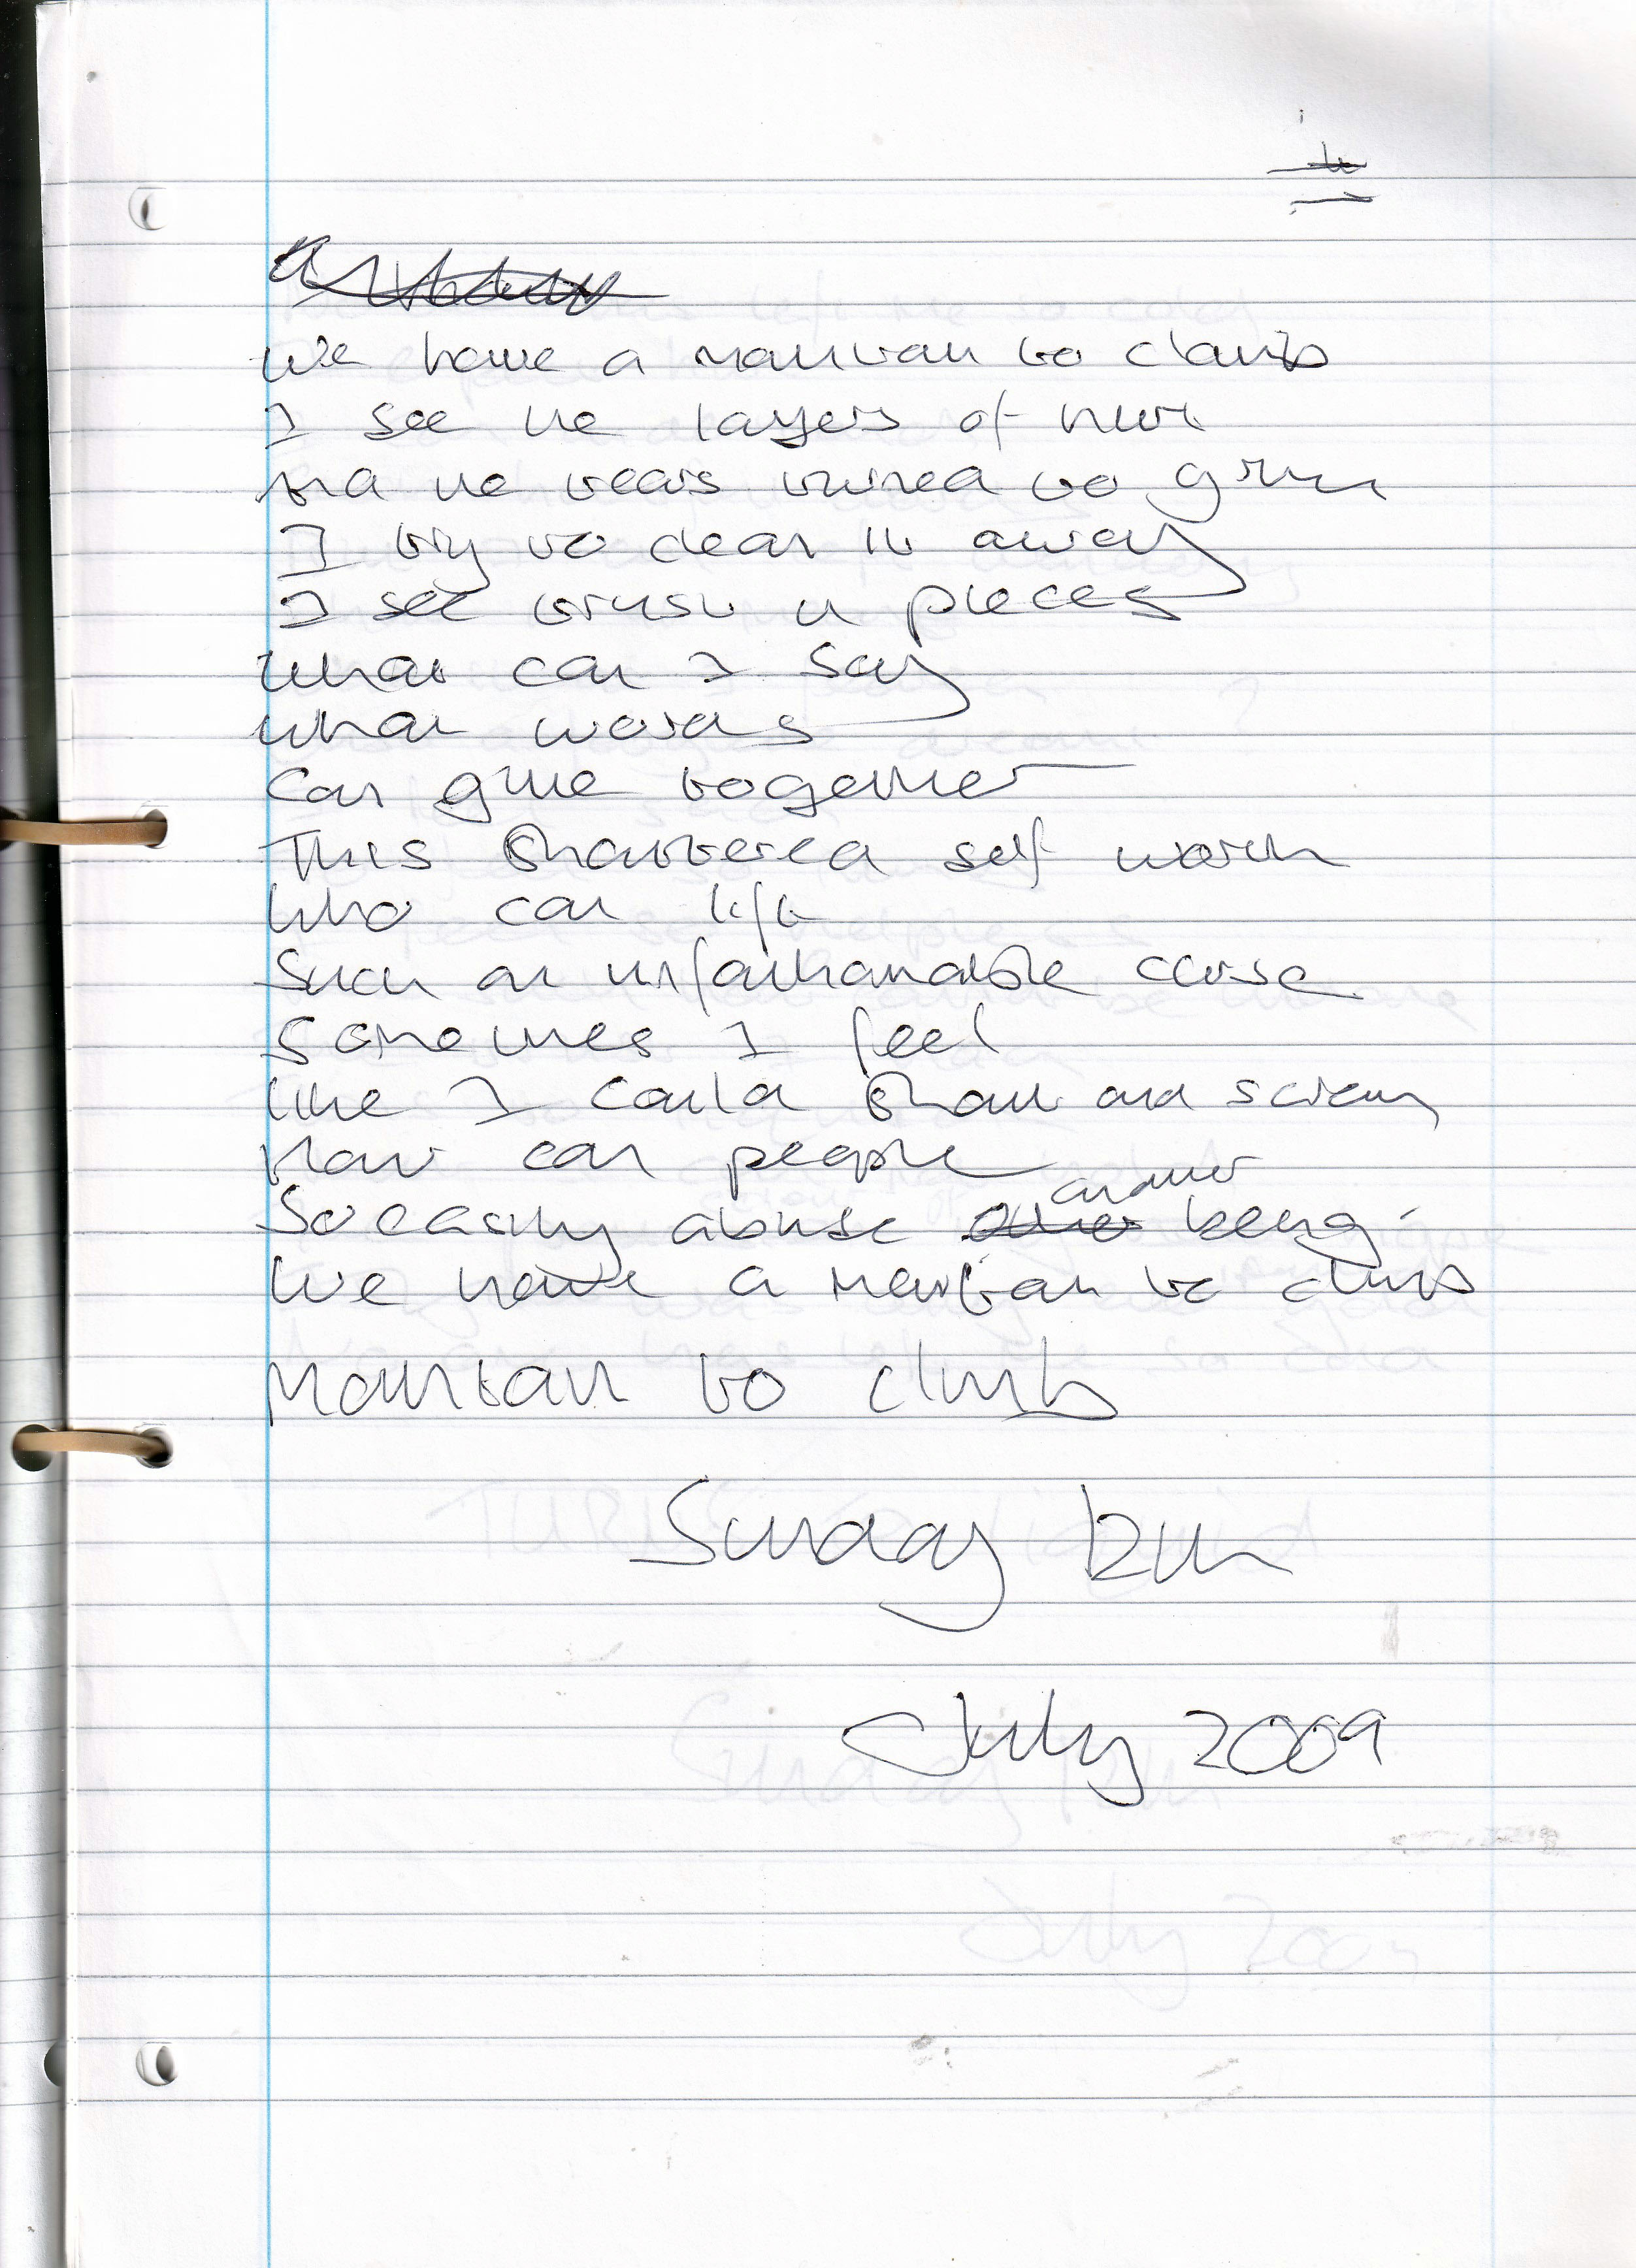 We have a mountain to climb
I see the layers of hurt
And the tears turned to grim
I try to clear it away
I see trust in pieces
What can I say
What words
Can glue together
This shattered self worth
Who can lift
Such an unfathomable curse
Sometimes I feel
like I could shout and scream
How can people
So easily abuse another being.
We have a mountain to climb
Mountain to climb
Sunday
July 2009